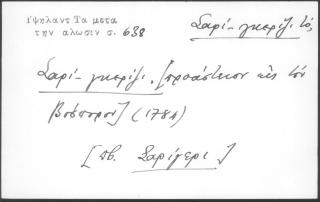 Ὑψηλαντ Τα μετα
την αλωσιν σ. 638
Σαρί-γκερίζι, τό,
Σαρί-γκερίζι. [προάστειον εἰς τόν
Βόσπορον] (1784)
[πβ. Σαρίγερι]